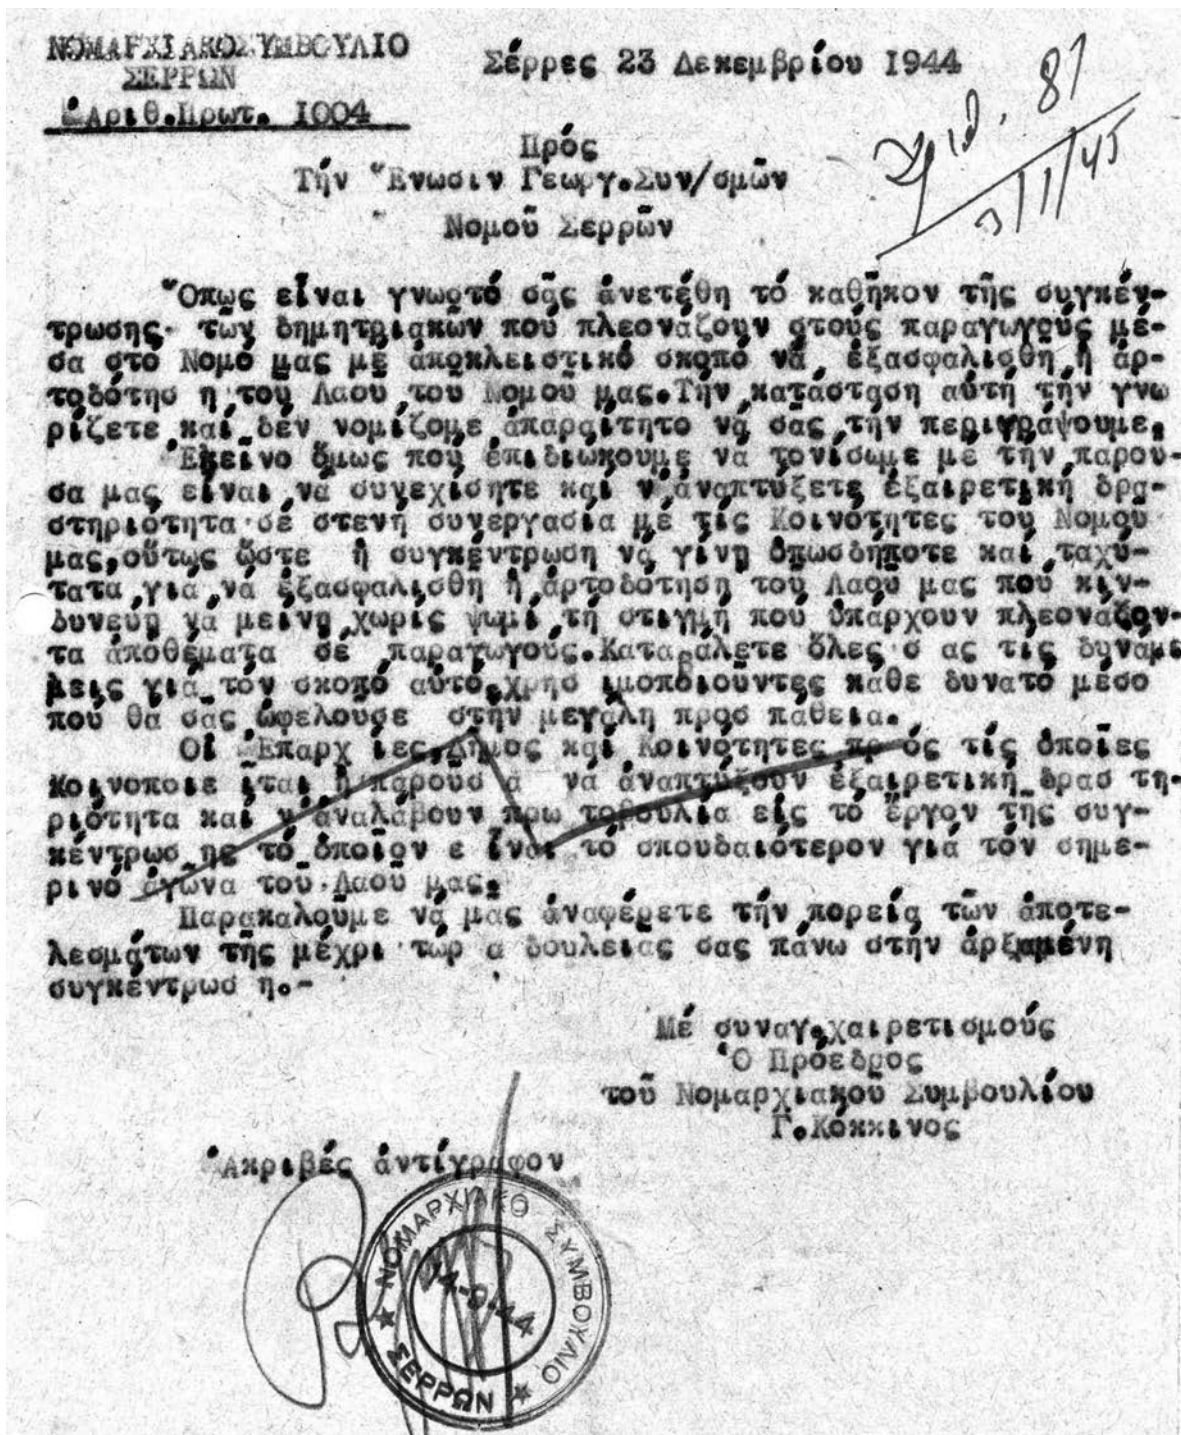 ΝΟΜΑΡΧΙΑΚΟ ΣΥΜΒΟΥΛΙΟ
ΣΕΡΡΩΝ
Ἀριθ.Πρωτ. 1004
Σέρρες 23 Δεκεμβρίου 1944
81
3/1/45
Πρός
Τήν Ἕνωσιν Γεωργ.Συν/σμῶν
Νομοῦ Σερρῶν
Ὅπως εἶναι γνωστό σᾶς ἀνετέθη τό καθῆκον τῆς συγκέν-
τρωσης τῶν δημητριακῶν πού πλεονάζουν στούς παραγωγούς μέ-
σα στό Νομό μας μέ ἀποκλειστικό σκοπό νά ἐξασφαλισθῆ ἡ ἀρ-
τοδότησ η τοῦ Λαοῦ τοῦ Νομοῦ μας.Τήν κατάσταση αὐτή τήν γνω
ρίζετε καί δέν νομίζομε ἀπαραίτητο νά σᾶς τήν περιγράψουμε.
Ἐκεῖνο ὅμως πού ἐπιδιώκουμε νά τονίσωμε μέ τήν παροῦ-
σα μας εἶναι νά συνεχίσητε καί ν'ἀναπτύξετε ἐξαιρετική δρα-
στηριότητα σέ στενή συνεργασία μέ τίς Κοινότητες τοῦ Νομοῦ
μας,οὕτως ὥστε ἡ συγκέντρωση νά γίνη ὁπωσδήποτε καί ταχύ-
τατα γιά νά ἐξασφαλισθῆ ἡ ἀρτοδότηση τοῦ Λαοῦ μας πού κιν-
δυνεύη νά μείνη χωρίς ψωμί τή στιγμή πού ὑπάρχουν πλεονάζον-
τα ἀποθέματα σέ παραγωγούς.Καταβάλετε ὅλες σ ας τίς δυνάμε
μεις γιά τόν σκοπό αὐτό,χρησ ιμοποιοῦντες κάθε δυνατό μέσο
πού θά σᾶς ὠφελοῦσε στήν μεγάλη προσ πάθεια.
Οἱ Ἐπαρχ ίες,Δῆμος καί Κοινότητες πρ ός τίς ὁποῖες
κοινοποιε ῖται ἡ παροῦσ α νά ἀναπτύξουν ἐξαιρετική δρασ τη-
ριότητα καί ν'ἀναλάβουν πρω τοβουλία εἰς τό ἔργον τῆς συγ-
κέντρωσ ης τό ὁποῖον ε ἶναι τό σπουδαιότερον γιά τόν σημε-
ρινό ἀγῶνα τοῦ Λαοῦ μας.
Παρακαλοῦμε νά μᾶς ἀναφέρετε τήν πορεία τῶν ἀποτε-
λεσμάτων τῆς μέχρι τώρ α δουλειᾶς σας πάνω στήν ἀρξαμένη
συγκέντρωσ η.-
Μέ συναγ.χαιρετισμούς
Ὁ Πρόεδρος
τοῦ Νομαρχιακοῦ Συμβουλίου
Γ.Κόκκινος
Ἀκριβές ἀντίγραφον
ΝΟΜΑΡΧΙΑΚΟ ΣΥΜΒΟΥΛΙΟ
14-9-44
ΣΕΡΡΩΝ